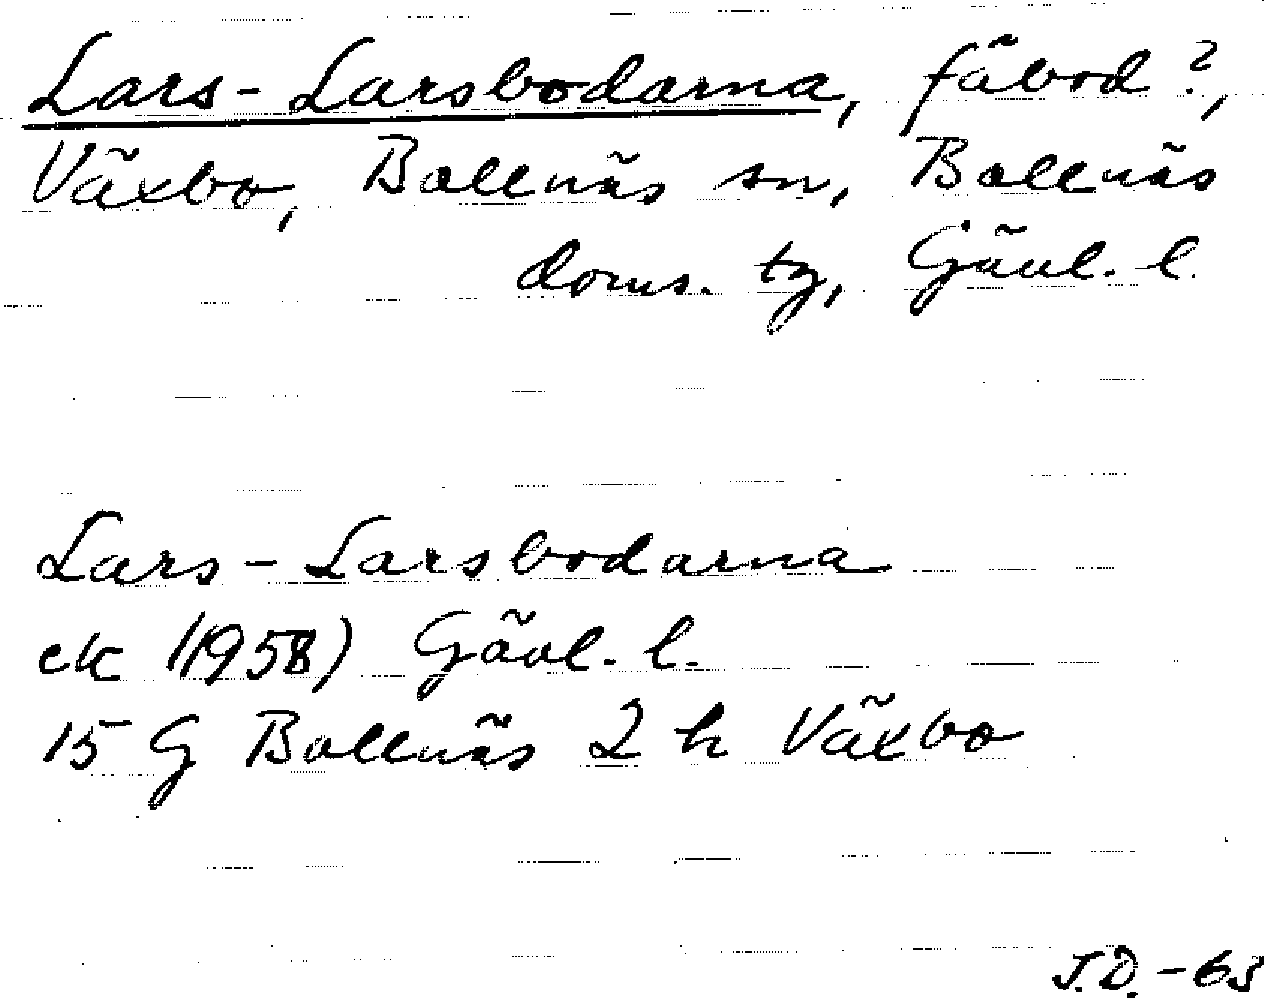 Lars-Larsbodarna, fäbod?,
Växbo, Bollnäs sn, Bollnäs
doms. tg, Gävl. l.
Lars-Larsbodarna
ek (1958) Gävl. l.
15 G Bollnäs 2 h Växbo
J.D. -63